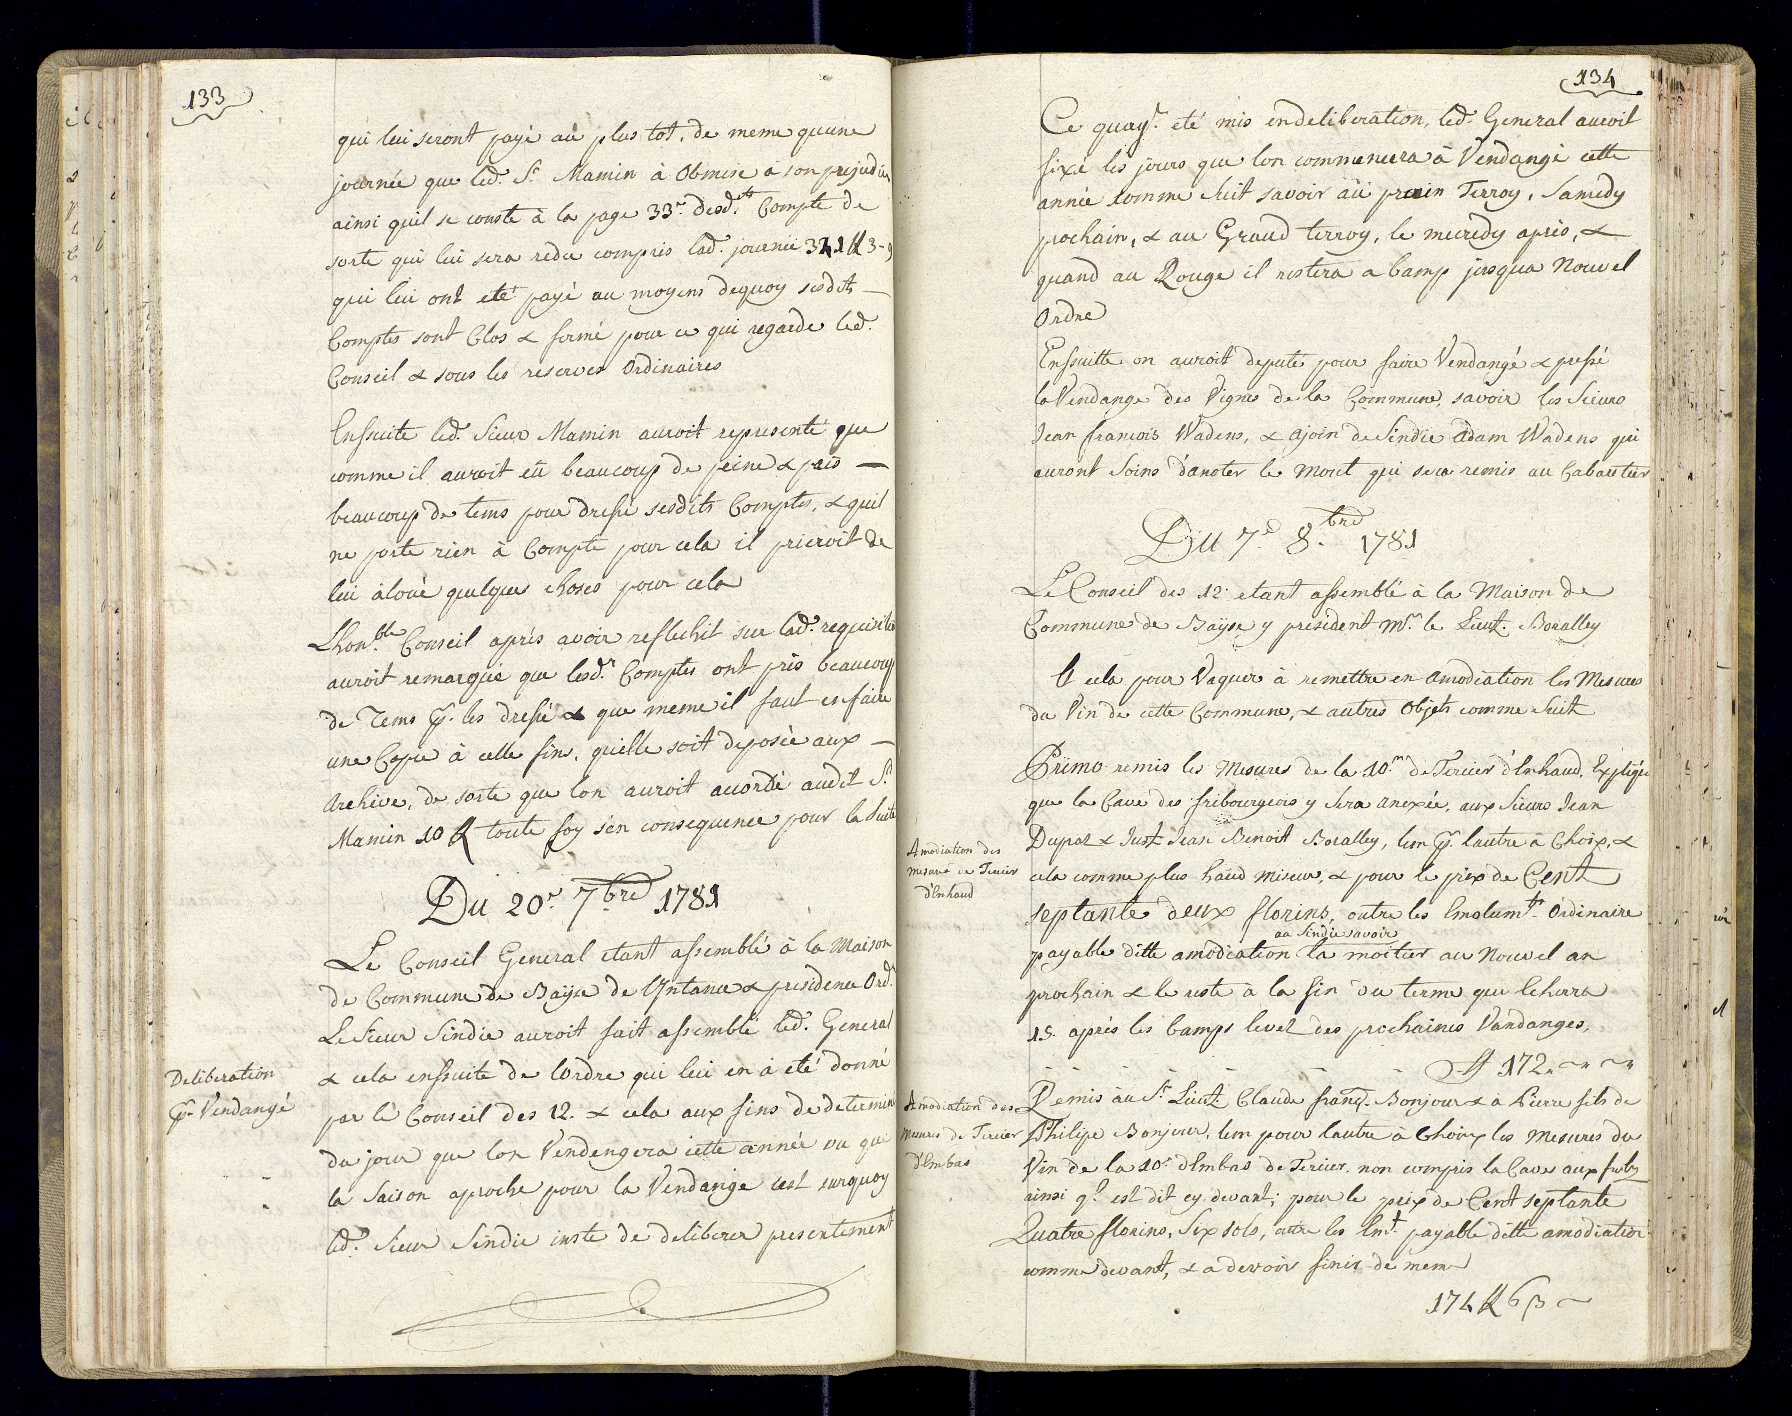 133
qui lui seront payé au plus tot, de meme quune
journée que led. Sr. Mamin à Obmise à son prejudice
ainsi quil se conste à la page 33e. desd.ts Compte de
sorte qui lui sera redu compris lad. journée
qui lui ont eté payé au moyens dequoy sesdits
Comptes sont Clos & fermé pour ce qui regarde led.
Conseil & sous les reserves Ordinaires
Ensuite led. Sieur Mamin auroit representé que
comme il auroit eü beaucoup de peine & pris
beaucoup de tems pour dressé sesdits Comptes, & quil
ne porte rien à Compte pour cela il prieroit de
lui àloué quelques choses pour cela
Lhon.ble Conseil aprés avoir reflechit sur lad. requisition
auroit remarqué que lesd. Comptes ont pris beaucoup
de Tems pr. les dressé & que meme il faut en faire
une Copie à celle fins, quelle soit deposée aux
Archive, de sorte que lon auroit acordé audit Sr.
Mamin 10 ₶ toute foy s'en consequence pour la Suite
Du 20e. 7bre 1781
Le Conseil General etant assemblé à la Maison
de Commune de Baÿse de & presidence Ord.
Le Sieur Sindic auroit fait assemblé led. General
Deliberation
pr. Vendangé
& cela enssuite de lOrdre qui lui en à eté donné
par le Conseil des 12. & cela aux fins de determiné
du jour que lon Vendengera cette année vu que
la Saison aproche pour la Vendange cest surquoy
led. Sieur Sindic inste de deliberer presentement
134
Ce quay. eté mis en deliberation, led. General auroit
fixé les jours que lon commencera à Vendangé cette
année comme suit savoir aü Terroy, Samedy
prochain, & au Grand terroy, le mecredy aprés, &
quand au Rouge il restera a bamp jusqua Nouvel
Ordre
Enssuitte on auroit deputé pour faire Vendangé & pressé
la Vendange des Vignes de la Commune, savoir les Sieurs
Jean françois Wadens, & ajoin de Sindic Adam Wadens qui
auront Soins d'anoter le Mout qui sera remis au Cabartier
Du 7e. 8.bre 1781
Le Conseil des 12. etant assemblé à la Maison de
Commune de Baÿse y president Mr. le Lieut. Boralley
& cela pour Vaquer à remettre en amodiation les Mesures
du Vin de cette Commune, & autres Objets comme Suit
Amodiation des
mesure de Tercier
d'Enhaud
Primo remis les Mesures de la 10.me de Tercier d'Enhaud, Expliqué
que la Cave des fribourgeois y Sera anexée, aux Sieurs Jean
Dupaz & Just. Jean Benoit Boralley, lun pr. lautre à Choix, &
cela comme plus haud miseur, & pour le prix de Cent
septante deux florins, outre les Emolum.ts Ordinaire
au Sindic savoir
payable ditte amodiation la moitier au Nouvel an
prochain & le reste à la fin du terme que
15. aprés les bamps levez des prochaines Vandanges.
ff 172 „ ~ „ ~ „
Amodiation des
Mesures de Tercier
d'Embas
Remis àu Sr. Lieut. Claude franç. Bonjour & à Pierre fils de
Philipe Bonjour, lun pour lautre à Choix les Mesures du
Vin de la 10e. d'Embas de Tercier. non compris la Cave aux frib.
ainsi q.l est dit cy devant; pour le prix de Cent septante
Quatre florins, Six sols, outre les Emt. payable ditte amodiation
comme devant, & a devoir finir de meme
174 ₶ 6 ß ~